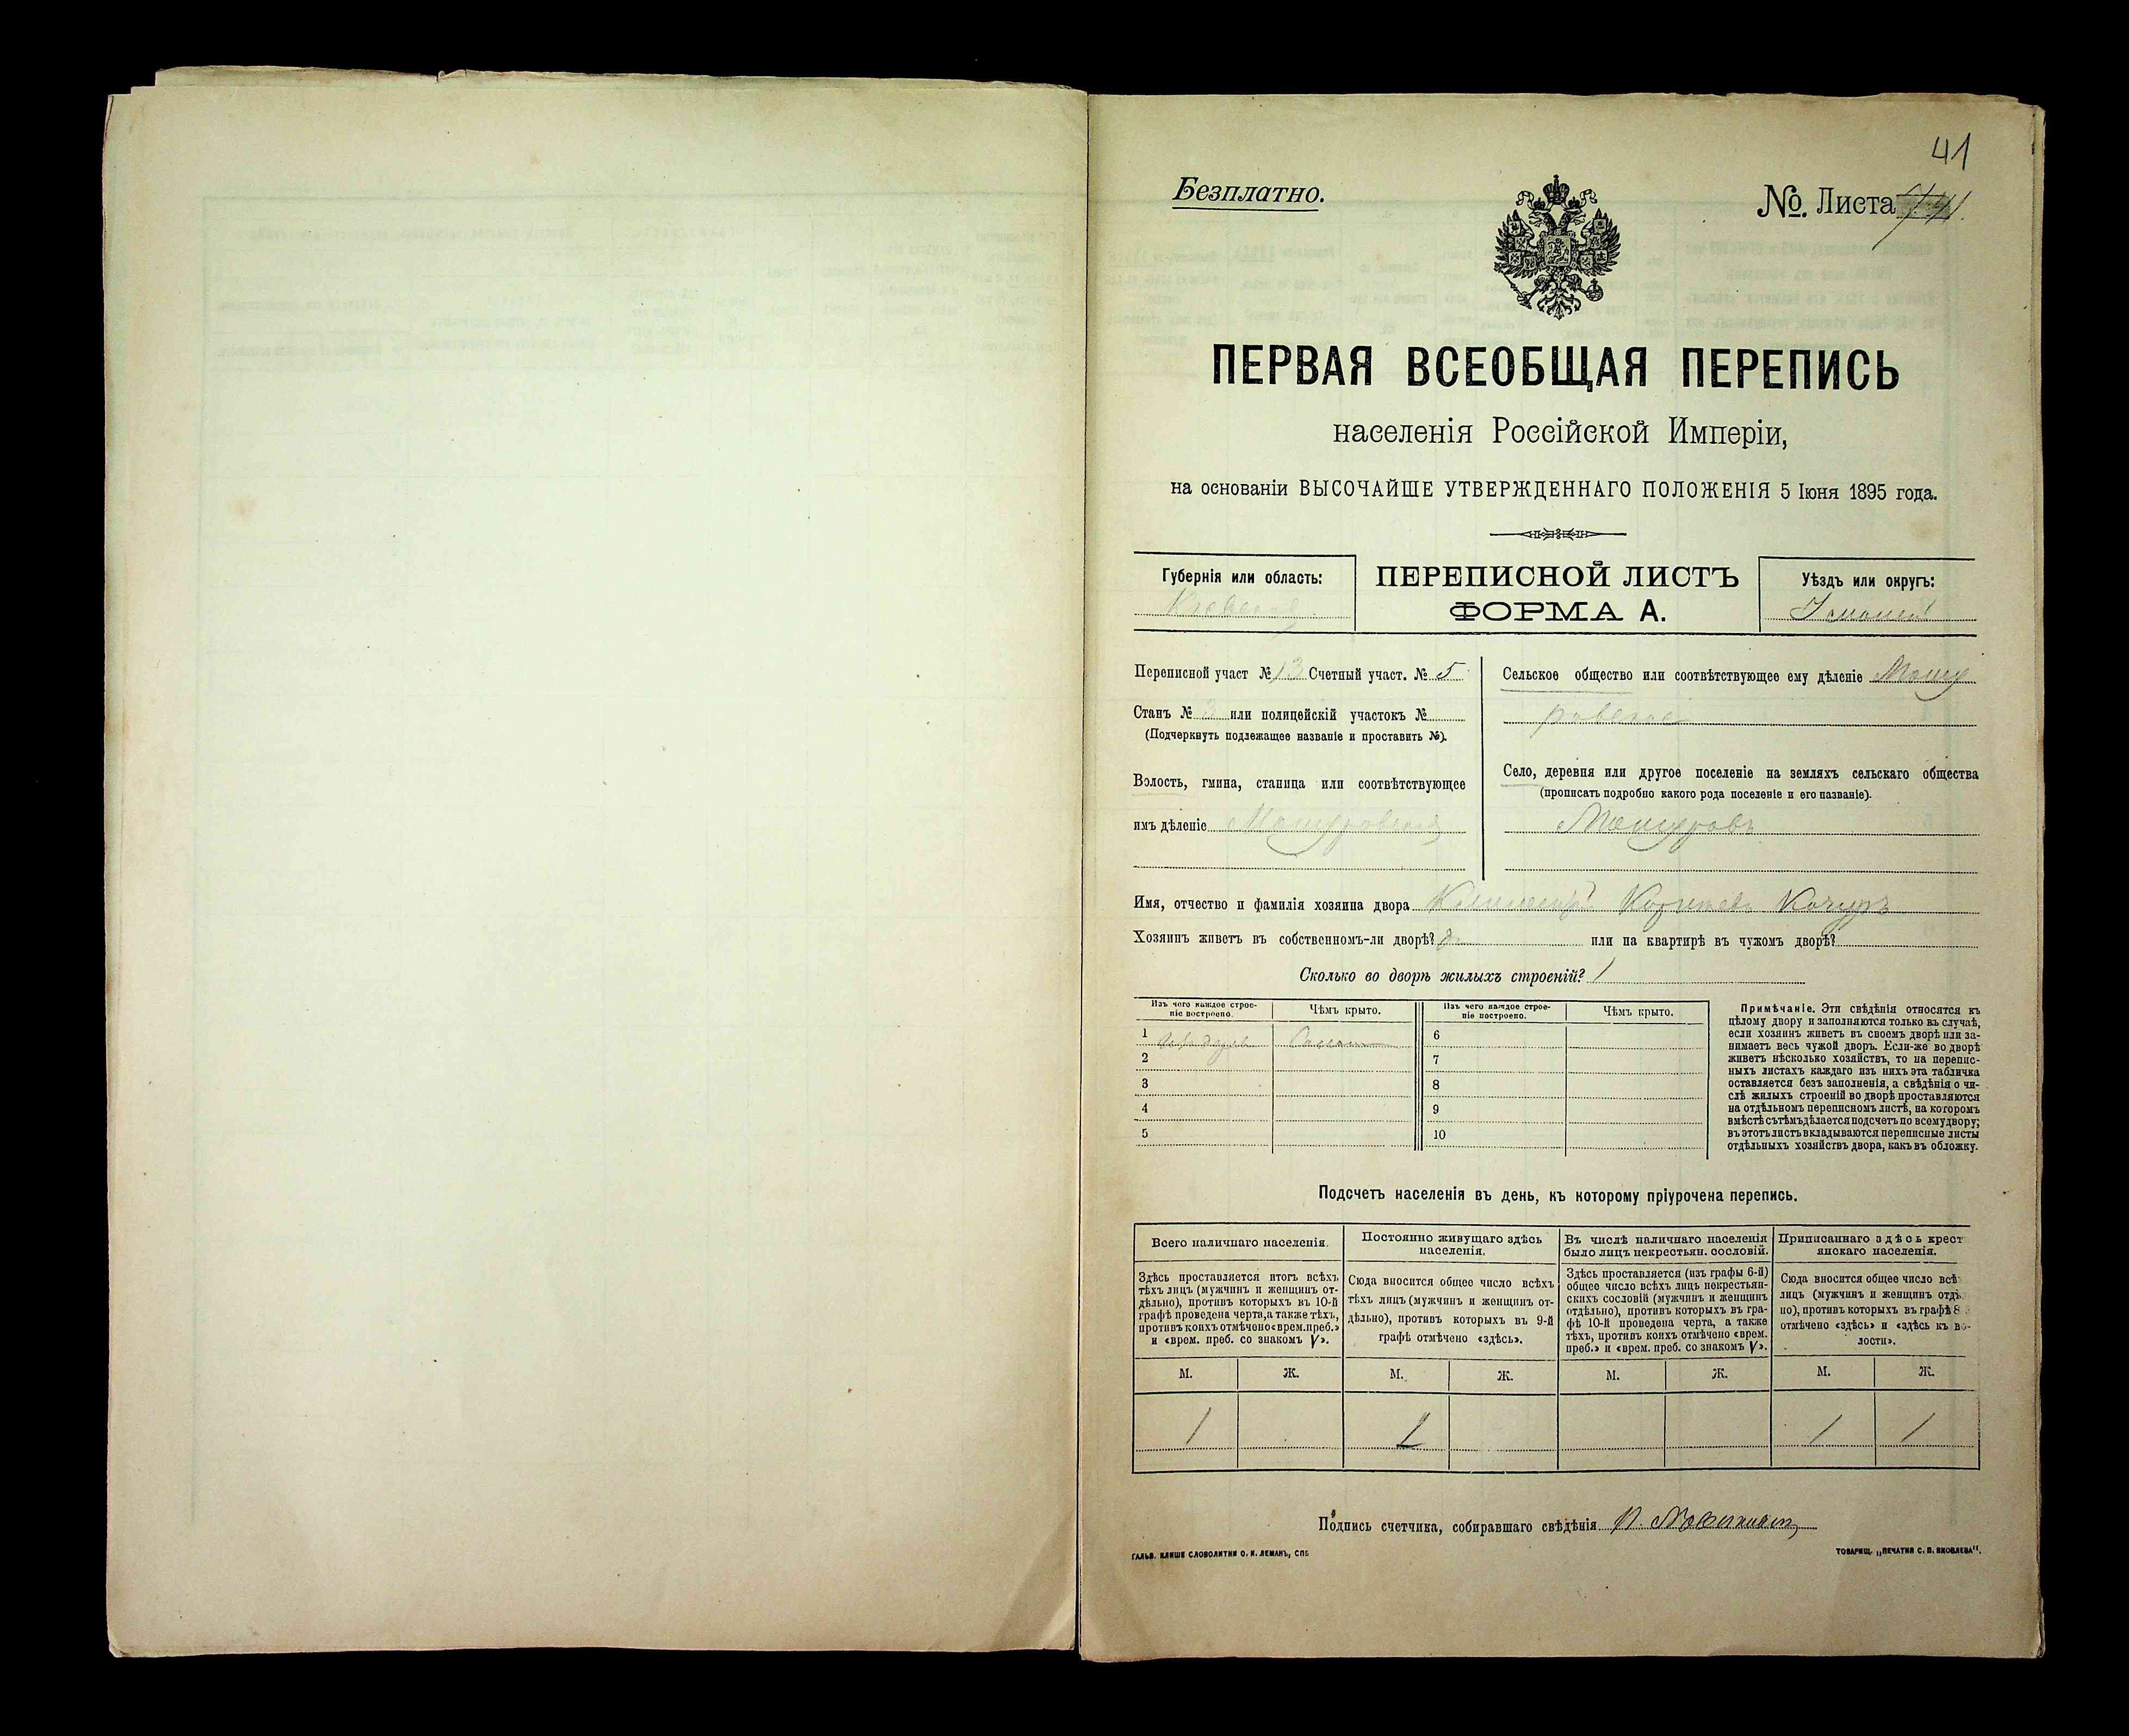 41
Безплатно.
№. Листа 41.
ПЕРВАЯ ВСЕОБЩАЯ ПЕРЕПИСЬ
населенія Россійской Имперіи,
на основаніи ВЫСОЧАЙШЕ УТВЕРЖДЕННАГО ПОЛОЖЕНІЯ 5 Іюня 1895 года.
Губернія или область:
Кіевская
ПЕРЕПИСНОЙ ЛИСТЪ
ФОРМА А.
Уѣздъ или округъ:
Уманскій
Переписной участ № 13 Счетный участ. № 5
Станъ № 3 или полицейскій участокъ №
(Подчеркнуть подлежащее названіе и проставить №).
Волость, гмина, станица или соотвѣтствующее
имъ дѣленіе Машуровская
Сельское общество или соотвѣтствующее ему дѣленіе Машу
ровское
Село, деревня или другое поселеніе на земляхъ сельскаго общества
(прописать подробно какого рода поселеніе и его названіе).
Машуровъ
Имя, отчество и фамилія хозяина двора Качуръ
Хозяинъ живетъ въ собственномъ-ли дворѣ? или на квартирѣ въ чужомъ дворѣ?
Сколько во дворѣ жилыхъ строеній? 1
Изъ чего каждое строе-
ніе построено.
Чѣмъ крыто.
Изъ чего каждое строе-
ніе построено.
Чѣмъ крыто.
1 Солом 6
2 7
3 8
4 9
5 10
Примѣчаніе. Эти свѣдѣнія относятся къ
цѣлому двору и заполняются только въ случаѣ,
если хозяинъ живетъ въ своемъ дворѣ или за-
нимаетъ весь чужой дворъ. Если-же во дворѣ
живетъ нѣсколько хозяйствъ, то на перепис-
ныхъ листахъ каждаго изъ нихъ эта табличка
оставляется безъ заполненія, а свѣдѣнія о чи-
слѣ жилыхъ строеній во дворѣ проставляются
на отдѣльномъ переписномъ листѣ, на которомъ
вмѣстѣ съ тѣмъ дѣлается подсчетъ по всему двору;
въ этотъ листъ вкладываются переписные листы
отдѣльныхъ хозяйствъ двора, какъ въ обложку.
Подсчетъ населенія въ день, къ которому пріурочена перепись.
Всего наличнаго населенія.
Здѣсь проставляется итогъ всѣхъ
тѣхъ лицъ (мужчинъ и женщинъ от-
дѣльно), противъ которыхъ въ 10-й
графѣ проведена черта, а также тѣхъ,
противъ коихъ отмѣчено «врем. преб.»
и «врем. преб. со знакомъ V».
Постоянно живущаго здѣсь
населенія.
Сюда вносится общее число всѣхъ
тѣхъ лицъ (мужчинъ и женщинъ от-
дѣльно), противъ которыхъ въ 9-й
графѣ отмѣчено «здѣсь».
Въ числѣ наличнаго населенія
было лицъ некрестьян. сословій.
Здѣсь проставляется (изъ графы 6-й)
общее число всѣхъ лицъ некрестьян-
скихъ сословій (мужчинъ и женщинъ
отдѣльно), противъ которыхъ въ гра-
фѣ 10-й проведена черта, а также
тѣхъ, противъ коихъ отмѣчено «врем.
преб.» и «врем. преб. со знакомъ V».
Приписаннаго здѣсь крест
янскаго населенія.
Сюда вносится общее число всѣ
лицъ (мужчинъ и женщинъ отдѣ
но), противъ которыхъ въ графѣ 8
отмѣчено «здѣсь» и «здѣсь къ во-
лости».
М. Ж. М. Ж. М. Ж. М. Ж.
1 1 1 1
Подпись счетчика, собиравшаго свѣдѣнія
ГАЛЬВ. КЛИШЕ СЛОВОЛИТНИ О. И. ЛЕМАНЪ, СПБ
ТОВАРИЩ. „ПЕЧАТНЯ С. П. ЯКОВЛЕВА".